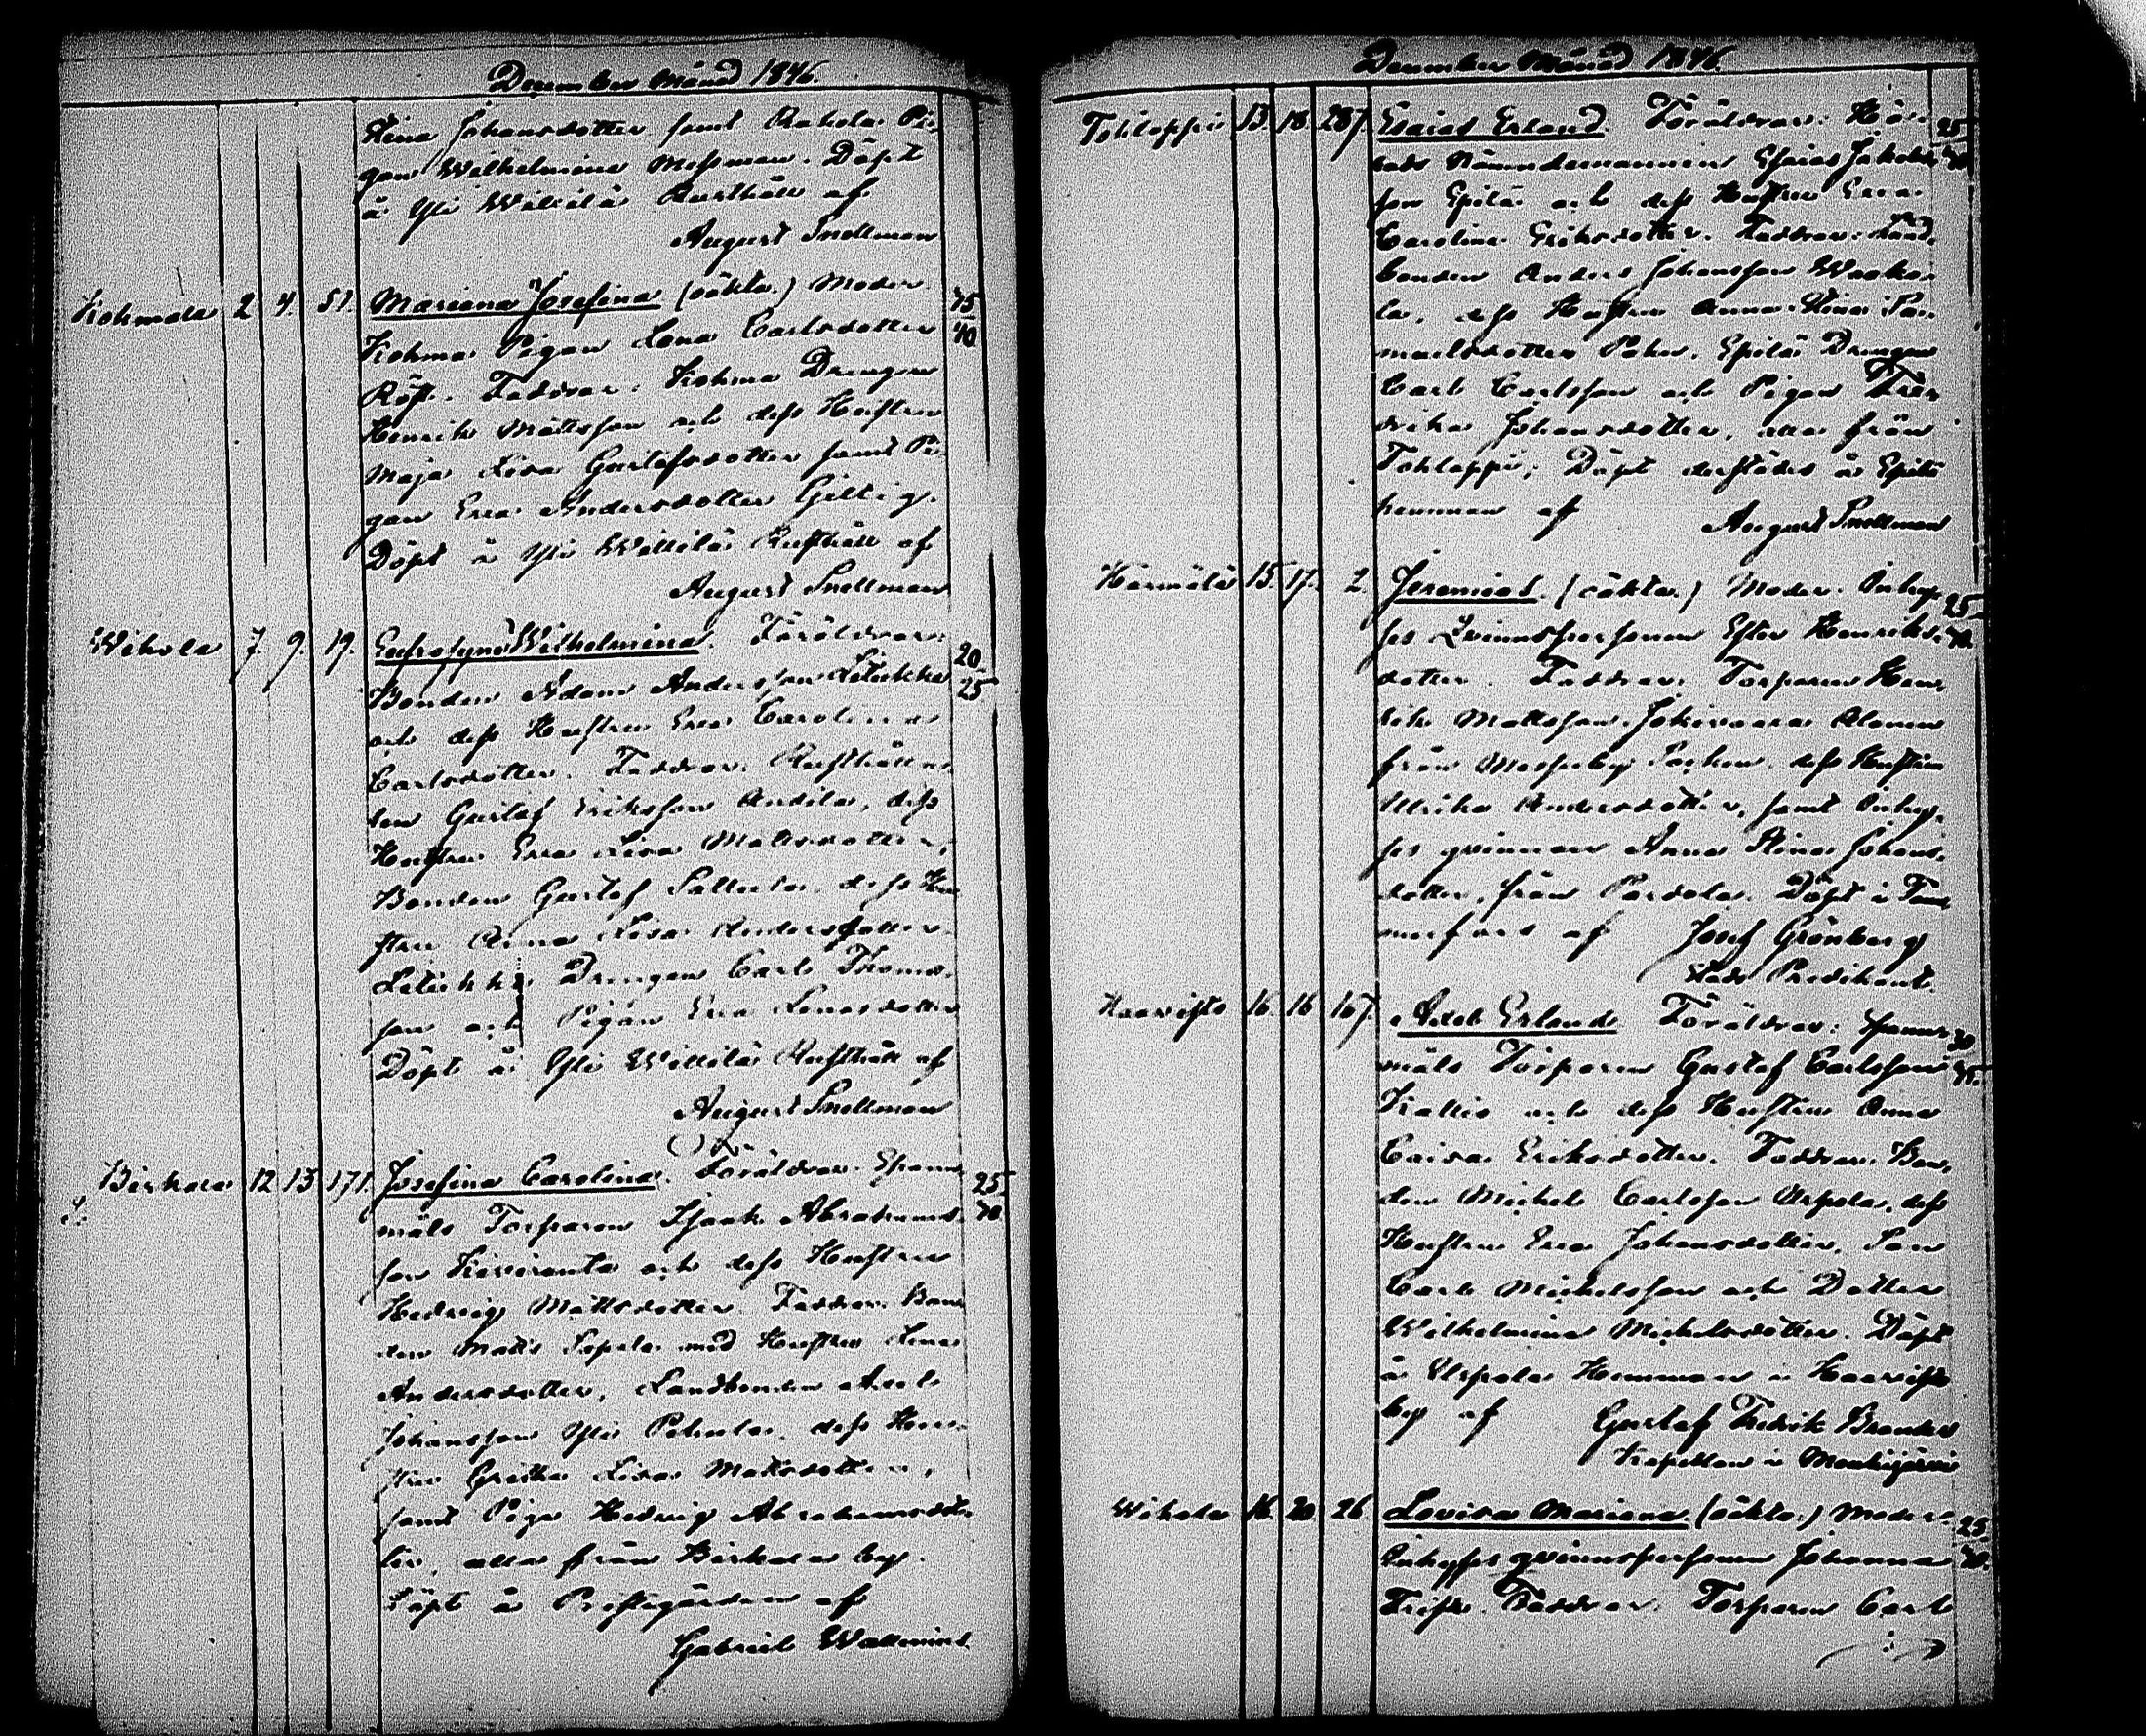 December Månad 1846.
Stina Johansdotter samt Rahola Pi-
gan Wilhelmina Messman. Döpt
å Yli Willilä Rusthåll af
August Snellman
Kohmala 2 4. 51. Mariana Josefina (oäkta.) Moder 35
Kohma Pigan Lena Carlsdotter 40
Röst. Faddrar: Kohma Drengen
Henrik Mattsson och dess Hustru
Maja Lisa Gustafsdotter samt Pi-
gan Eva Andersdotter
Döpt å Yli Willilä Rusthåll af
August Snellman
Wihola 7. 9. 19. Eufrosyne Wilhelmina. Föräldrar: 20
Bonden Adam Andersson Letukka 25
och dess Hustru Eva Carolina
Carlsdotter. Faddrar: Rusthålla-
ren Gustaf Eriksson Andila, dess
Hustru Eva Lisa Mattsdotter,
Bonden Gustaf dess Hu-
stru Anna Lisa Andersdotter
Letukka Drengen Carl Thomas-
son och Pigan Eva Lenasdotter
Döpt å Yli Willilä Rusthåll af
August Snellman
Birkala 12 13 171. Josefina Carolina. Föräldrar: Spann- 25
måls Torparen Isaak Abrahams- 30.
son Kiviranta och dess Hustru
Hedvig Mattsdotter. Faddrar: Bon-
den Matts Sepela med Hustru Lena
Andersdotter, Landbonden Axel
Johansson Yli Pehula, dess Hu-
stru Gretha Lisa Mattsdotter,
samt Piga Hedvig Abrahamsdot-
ter, alla från Birkala by.
Döpt å Prestgården af
Gabriel Wallenius.
December Månad 1846.
Tohloppi 13 18 287 Esaias Erland. Föräldrar: Hä- 25
rads Nämndemannen Esaias Jakobs- 30
son Epilä och dess Hustru Eva
Carolina Eriksdotter. Faddrar: Land-
bonden Anders Johansson Waaka-
la, dess Hustru Anna Stina Sa-
muelsdotter Epilä Drengen
Carl Carlsson och Pigan Fred-
rika Johansdotter, alla från
Tohloppi; Döpt derstädes å Epilä
hemman af August Snellman
Harmälä 15. 17. 2. Jeremias. (oäkta.) Moder: Inhy- 25
ses Qvinnspersonen Ester Henriks- 30.
dotter. Faddrar: Torparen Hen-
rik Mattsson Jokivaara Alanen
från Messuby Socken, dess Hustru
Ulrika Andersdotter, samt Inhy-
ses qvinnan Anna Stina Johans-
dotter, från Pärdola. Döpt i Tam-
merfors af Josef Grönberg
Stads Predikant.
Haavisto 16. 18 167. Axel Erland Föräldrar: Spann- 30
måls Torparen Gustaf Carlsson 35.
Kallio och dess Hustru Anna
Caisa Eriksdotter. Faddrar: Bon-
den Michel Carlsson Uspola, dess
Hustru Eva Johansdotter, Son
Carl Michelsson och Dotter
Wilhelmina Michelsdotter. Döpt
å Uspola Hemman i Haavisto
by af Gustaf Fredrik Brander
Kapellan i Mouhijärvi
Wihola 16. 20. 26. Lovisa Mariana (oäkta.) Moder: 25
Inhyses qvinnspersonen Johanna 30.
Frisk. Faddrar: Torparen Carl